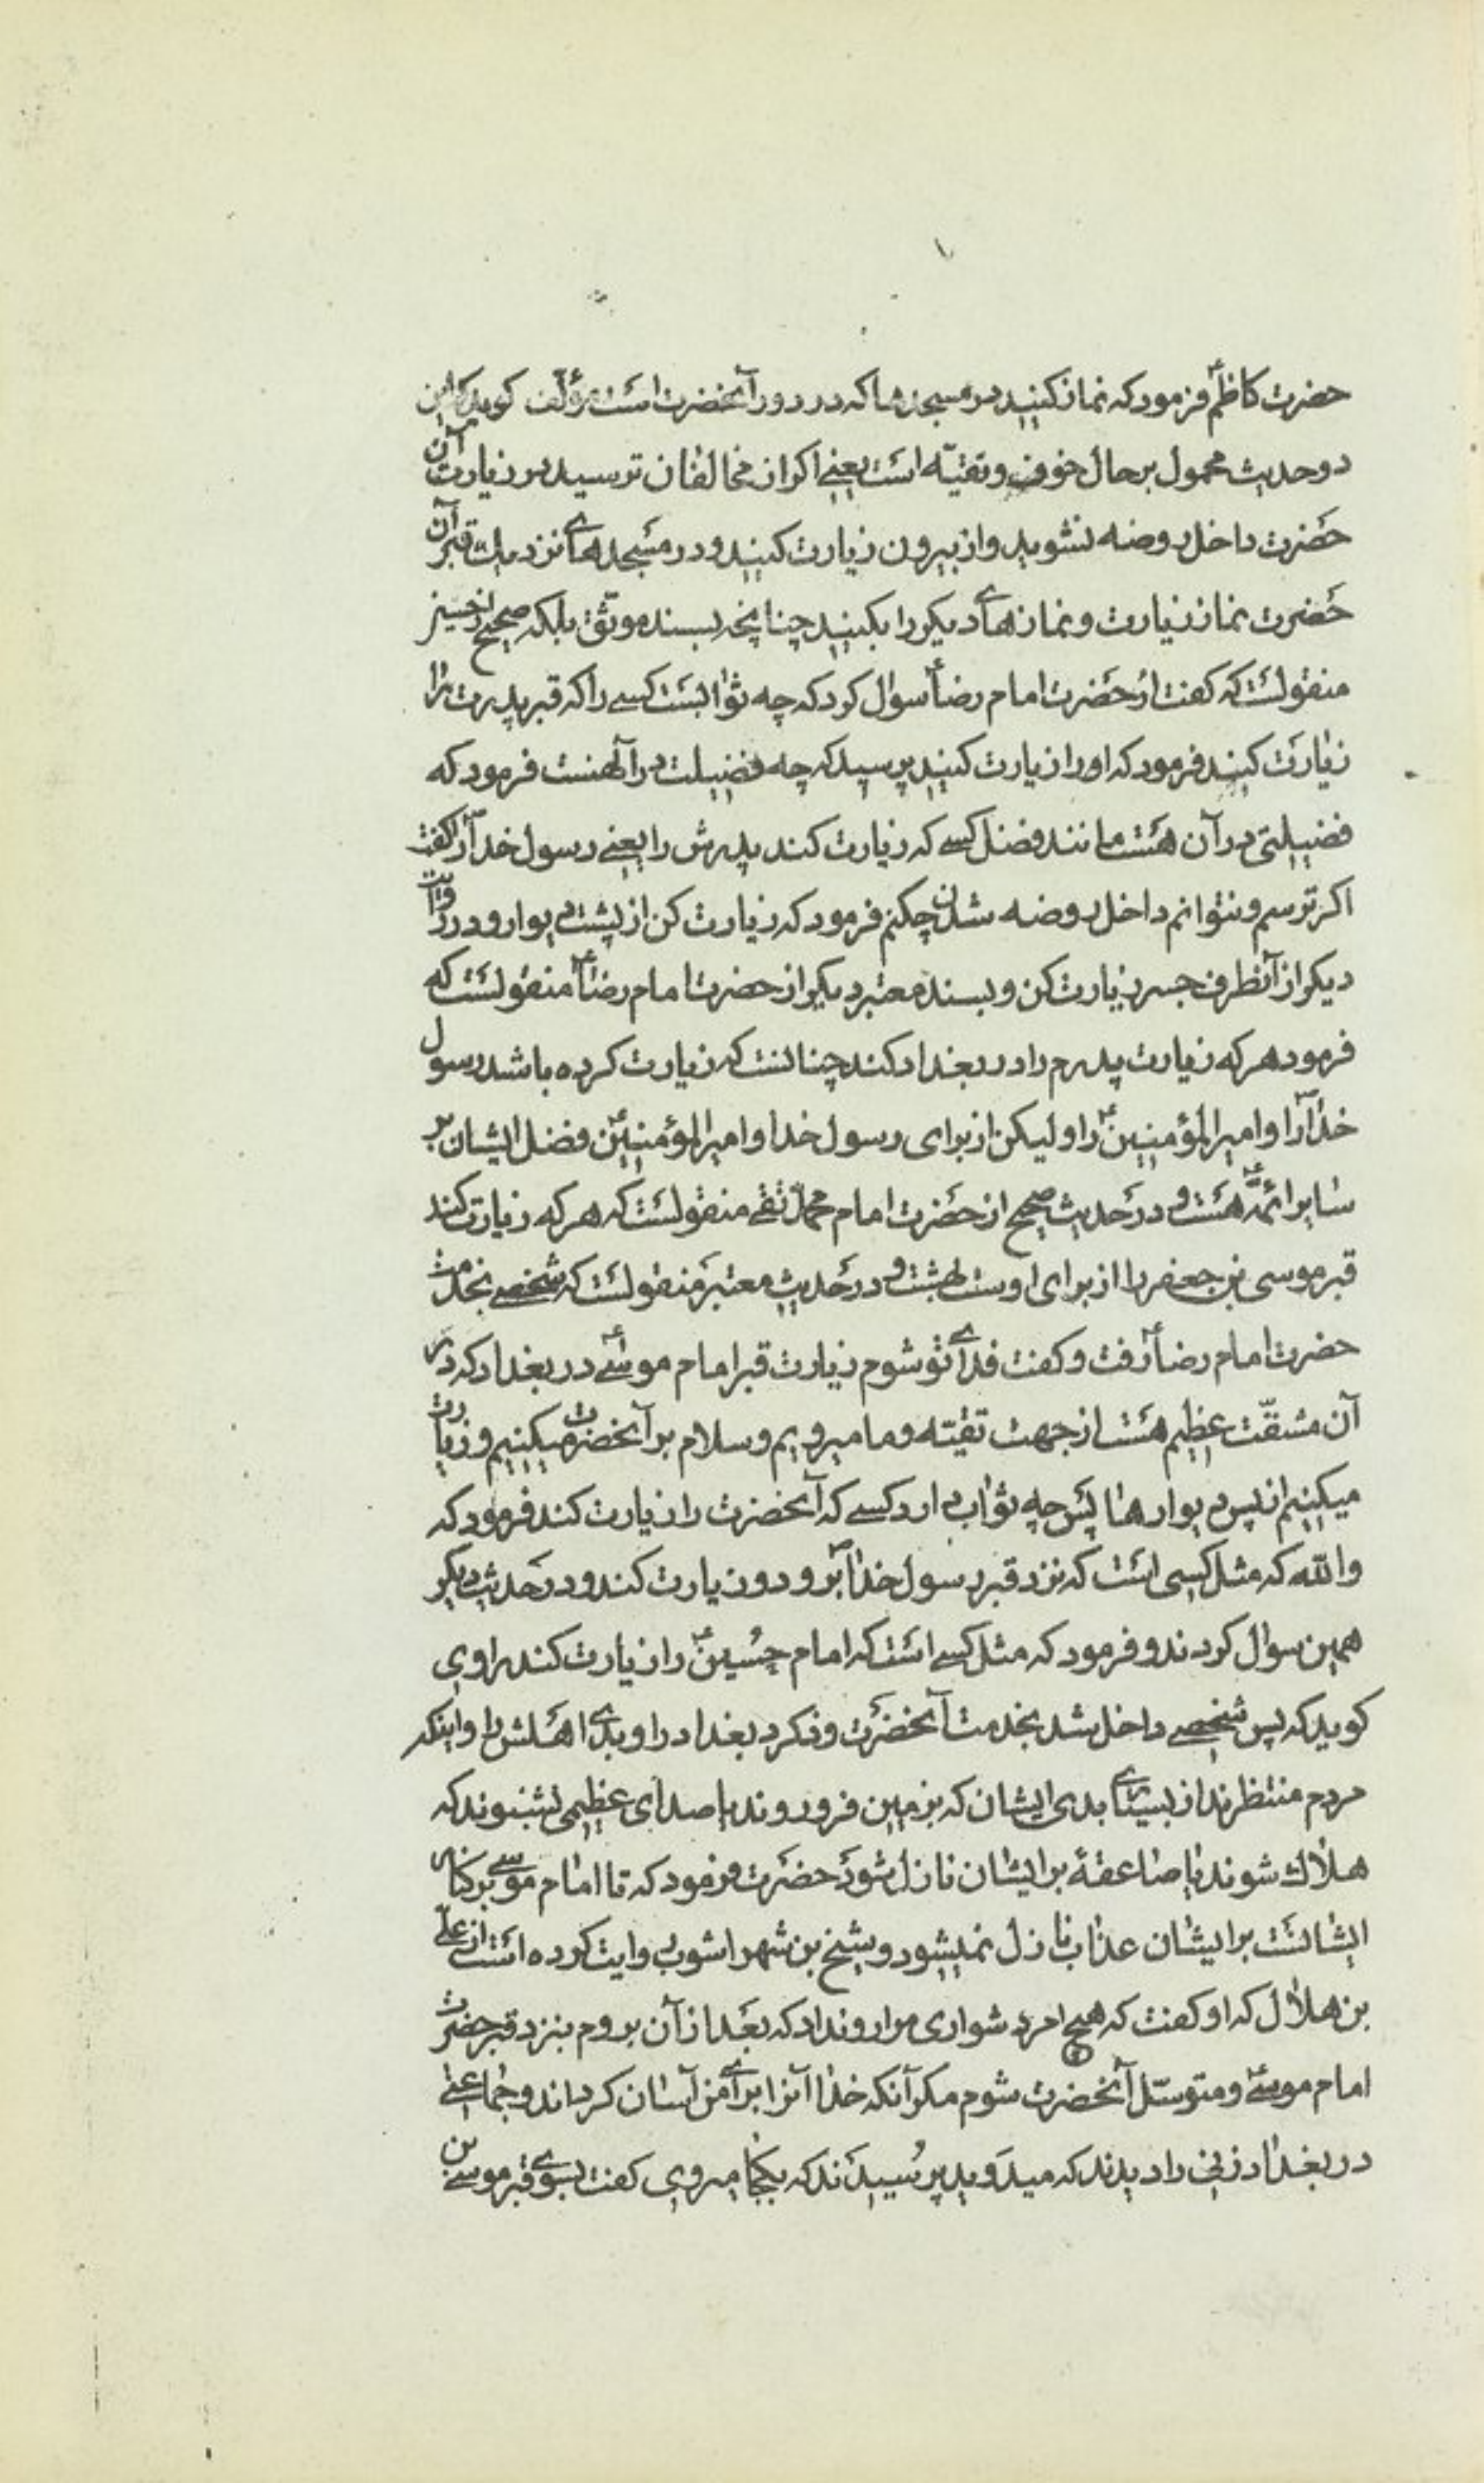 حضرت کاظمؑ فرمود که نماز کنید در مسجدها که در دور آنحضرت است مؤلف کوید که این
دو حدیث محمول بر حال خوف و تقیّه است یعنے اکر از مخالفان ترسید در زیارت آن
حضرت داخل روضه نشوید و از بیرون زیارت کنید و در مسجدهاے نزدیک قبر آن
حضرت نماز زیارت و نمازهاے دیکر را بکنید چنانچه بسند موثّق بلکه صحیح از حسین
منقولست که کفت از حضرت امام رضاؑ سوال کرد که چه ثوابست کسے را که قبر پدرت را
زیارت کند فرمود که او را زیارت کنید پرسید که چه فضیلت در آن هست فرمود که
فضیلتی در آن هست مانند فضل کسے که زیارت کند پدرش را یعنے رسول خداؐ را کفت
اکر ترسم و نتوانم داخل روضه شدن چکنم فرمود که زیارت کن از پشت دیوار و در روایت
دیکر از آنطرف جسر زیارت کن و بسند معتبر دیکر از حضرت امام رضاؑ منقولست که
فرمود هر که زیارت پدرم را در بغداد کند چنانست که زیارت کرده باشد رسول
خداؐ را و امیرالمؤمنینؑ را و لیکن از برای رسول خدا و امیرالمؤمنینؑ فضل ایشان بر
سایر ائمّهؑ هست و در حدیث صحیح از حضرت امام محمد تقے منقولست که هر که زیارت کند
قبر موسی بن جعفر را از برای اوست بهشت و در حدیث معتبر منقولست که شخصے بخدمت
حضرت امام رضاؑ رفت و کفت فداے تو شوم زیارت قبر امام موسےؑ در بغداد که در
آن مشقّت عظیم هست از جهت تقیّه و ما میرویم و سلام بر آنحضرت میکنیم و زیارت
میکنیم از پس دیوارها پس چه ثواب دارد کسے که آنحضرت را زیارت کند فرمود که
والله که مثل کسی است که نزد قبر رسول خداؐ برود و زیارت کند و در حدیث دیکر
همین سوال کردند و فرمود که مثل کسے است که امام حسینؑ را زیارت کند راوی
کوید که پس شخصے داخل شد بخدمت آنحضرت و ذکر بغداد را و بدے اهلش را و اینکه
مردم منتظرند از بسیارے بدی ایشان که بزمین فرو روند یا صداے عظیمی بشنوند که
هلاک شوند یا صاعقهٔ بر ایشان نازل شود حضرت فرمود که تا امام موسے بر کنار
ایشانست بر ایشان عذاب نازل نمیشود و شیخ بن شهراشوب روایت کرده است از علے
بن هلال که او کفت که هیچ امر دشواری مرا رو نداد که بعد از آن بروم بنزد قبر حضرت
امام موسےؑ و متوسّل آنحضرت شوم مکر آنکه خدا آنرا براے من آسان کرداند و جماعتے
در بغداد زنی را دیدند که میدوید پرسیدند که بکجا میروی کفت بسوے قبر موسے بن